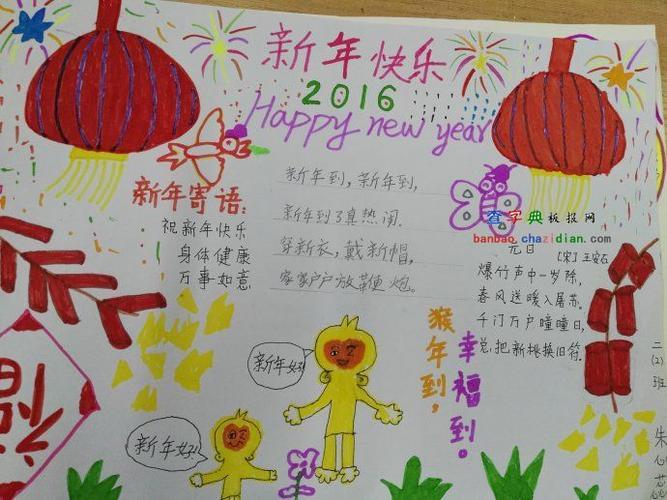 新年快乐
2016
Happy new year
新年寄语:
祝新年快乐
身体健康
万事如意
新年到，新年到，
新年到了真热闹。
穿新衣，戴新帽，
家家户户放鞭炮。
查字典板报网
banbao.chazidian.com
元日
[宋]王安石
爆竹声中一岁除，
春风送暖入屠苏。
千门万户瞳瞳日，
总把新桃换旧符。
猴年到，
幸福到。
新年好!
新年好!
福
二(2)班
朱